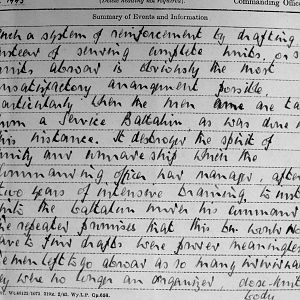 1943
(Delete heading not required).
Commanding Offic
Summary of Events and Information
Such a system of reinforcement by drafting
instead of sending complete units, or s
units abroad is obviously the most
unsatisfactory arrangment possible,
particularly when the men are ta
from a Service Battalion as was done
this instance. It destroys the spirit of
unity and comradeship which the
Commanding officer has managed, after
two years of intensive training, to inst
into the battalion under his command
The repeated promises that this bn would No
have to find drafts were proved meaningless
The men left to go abroad as so many individuals
they were no longer an organized close knit
body
Wt.43423/1073 319x. 2/41. Wy.L.P. Gp.656.